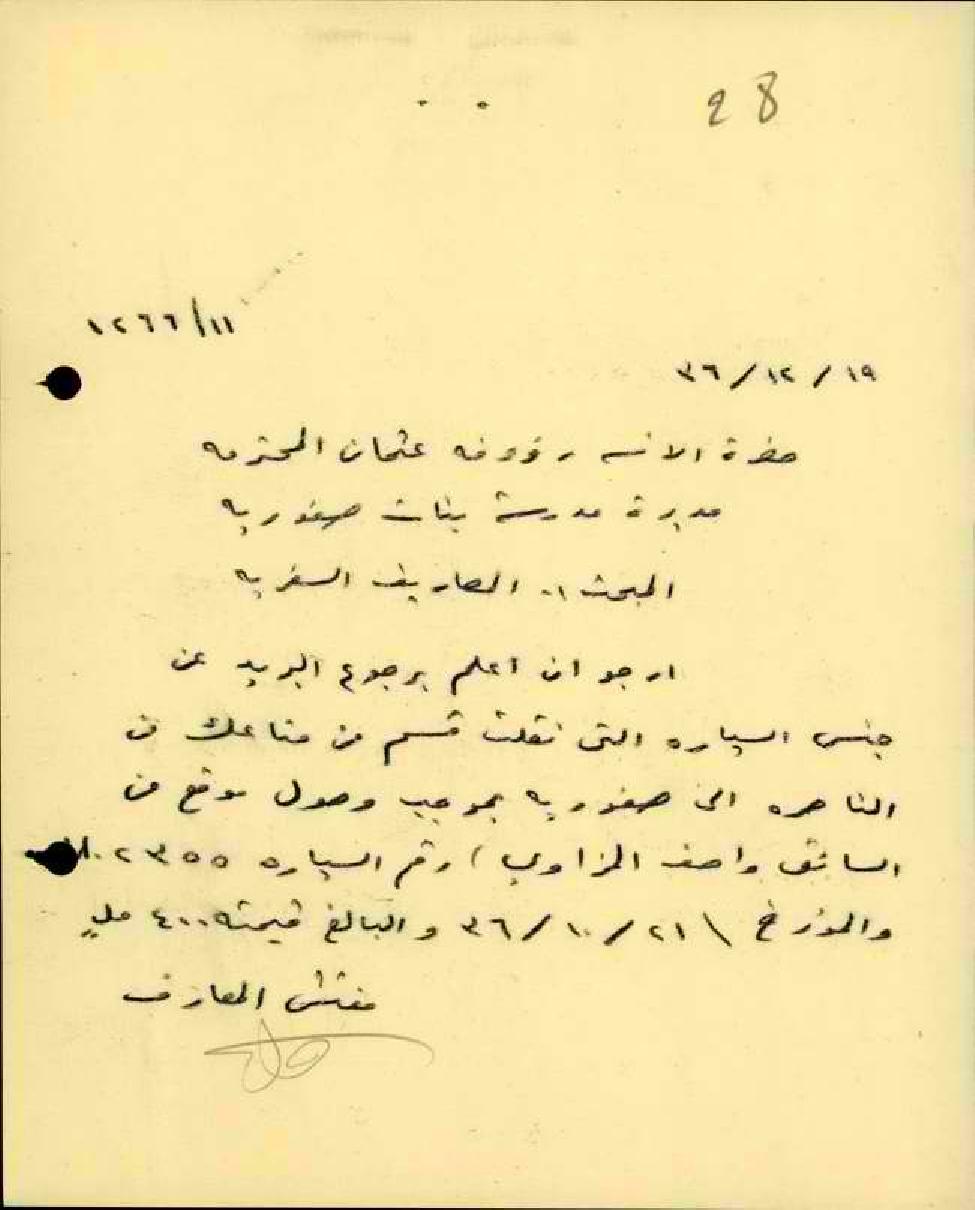 28
١٢٦٦/١١
٣٦/١٢/١٩
حضرة الانسه رؤوفه عثمان المحترمه
مديرة مدرسة بنات صفوريه
المبحث :- المصاريف السفريه
ارجو ان اعلم برجوع البريد عن
جنس السياره التى نقلت قسم من متاعك من
الناصره الى صفوريه بموجب وصول موقع من
السائق واصف المزاوي ) رقم السياره ٢٣٥٥
والمؤرخ \ ٣٦/١٠/٢١ والبالغ قيمته ٤٠٠ مل
مفتش المعارف